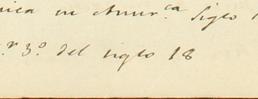 nica en Amer.ca Siglo
r 3º del siglo 18